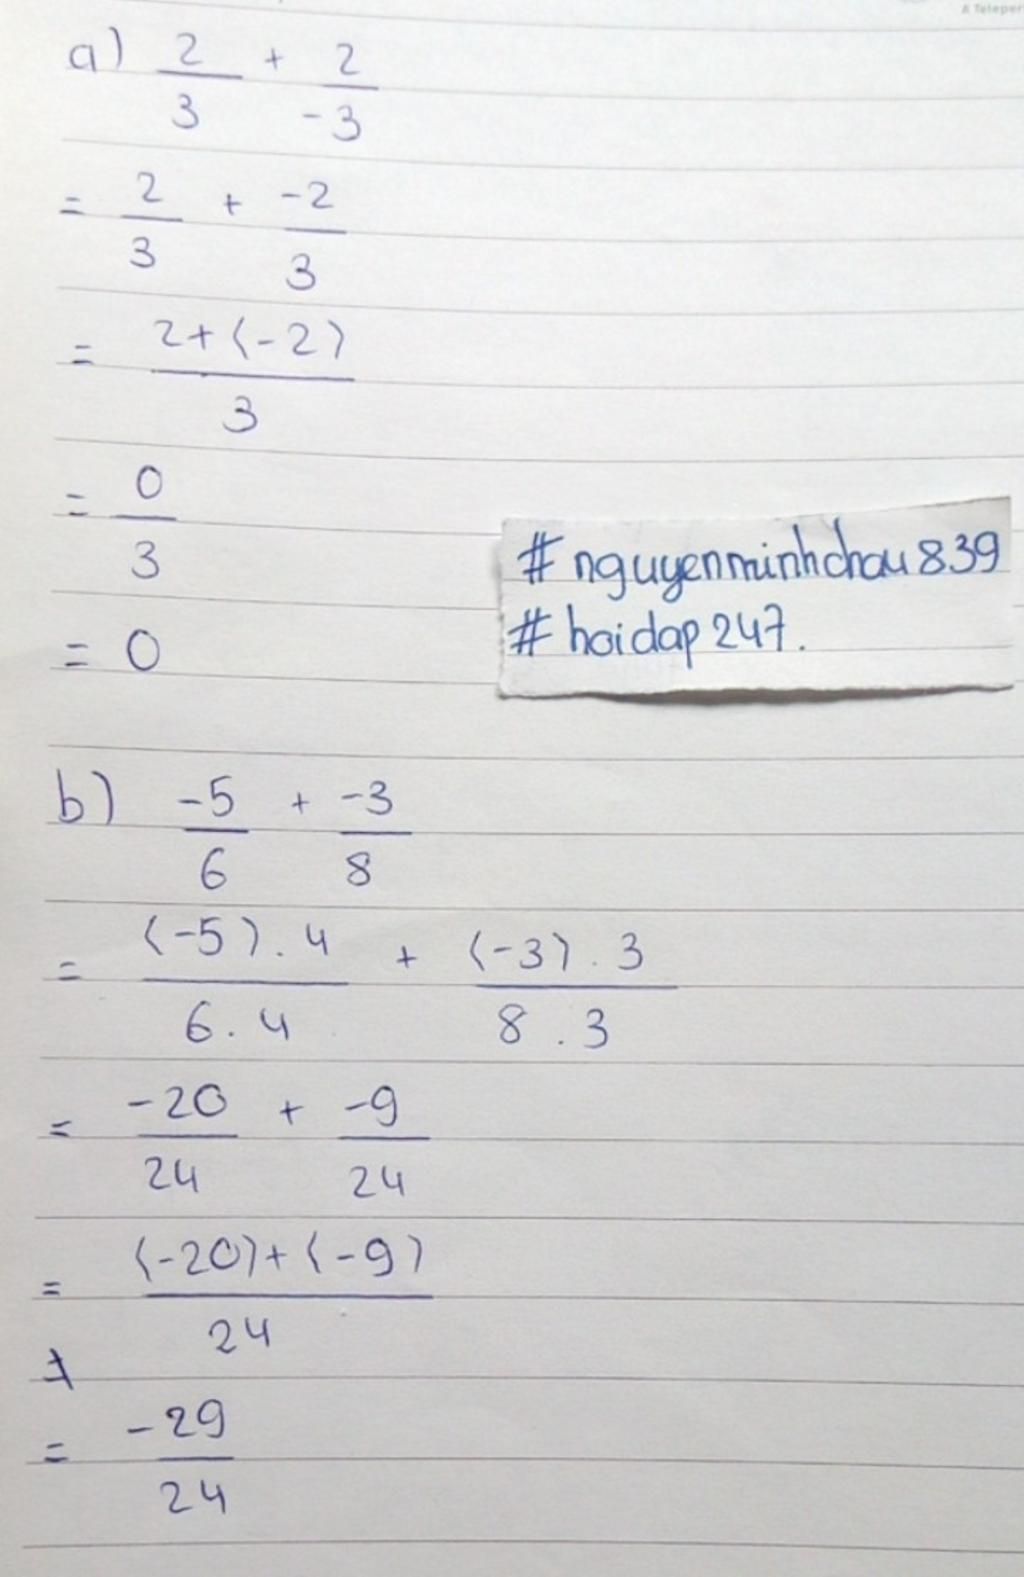 A Teleper
a) 2/3 + 2/-3
= 2/3 + -2/3
= 2+(-2)/3
= 0/3
= 0
#nguyenminhchau839
#hoidap247.
b) -5/6 + -3/8
= (-5).4/6.4 + (-3).3/8.3
= -20/24 + -9/24
= (-20)+(-9)/24
= -29/24